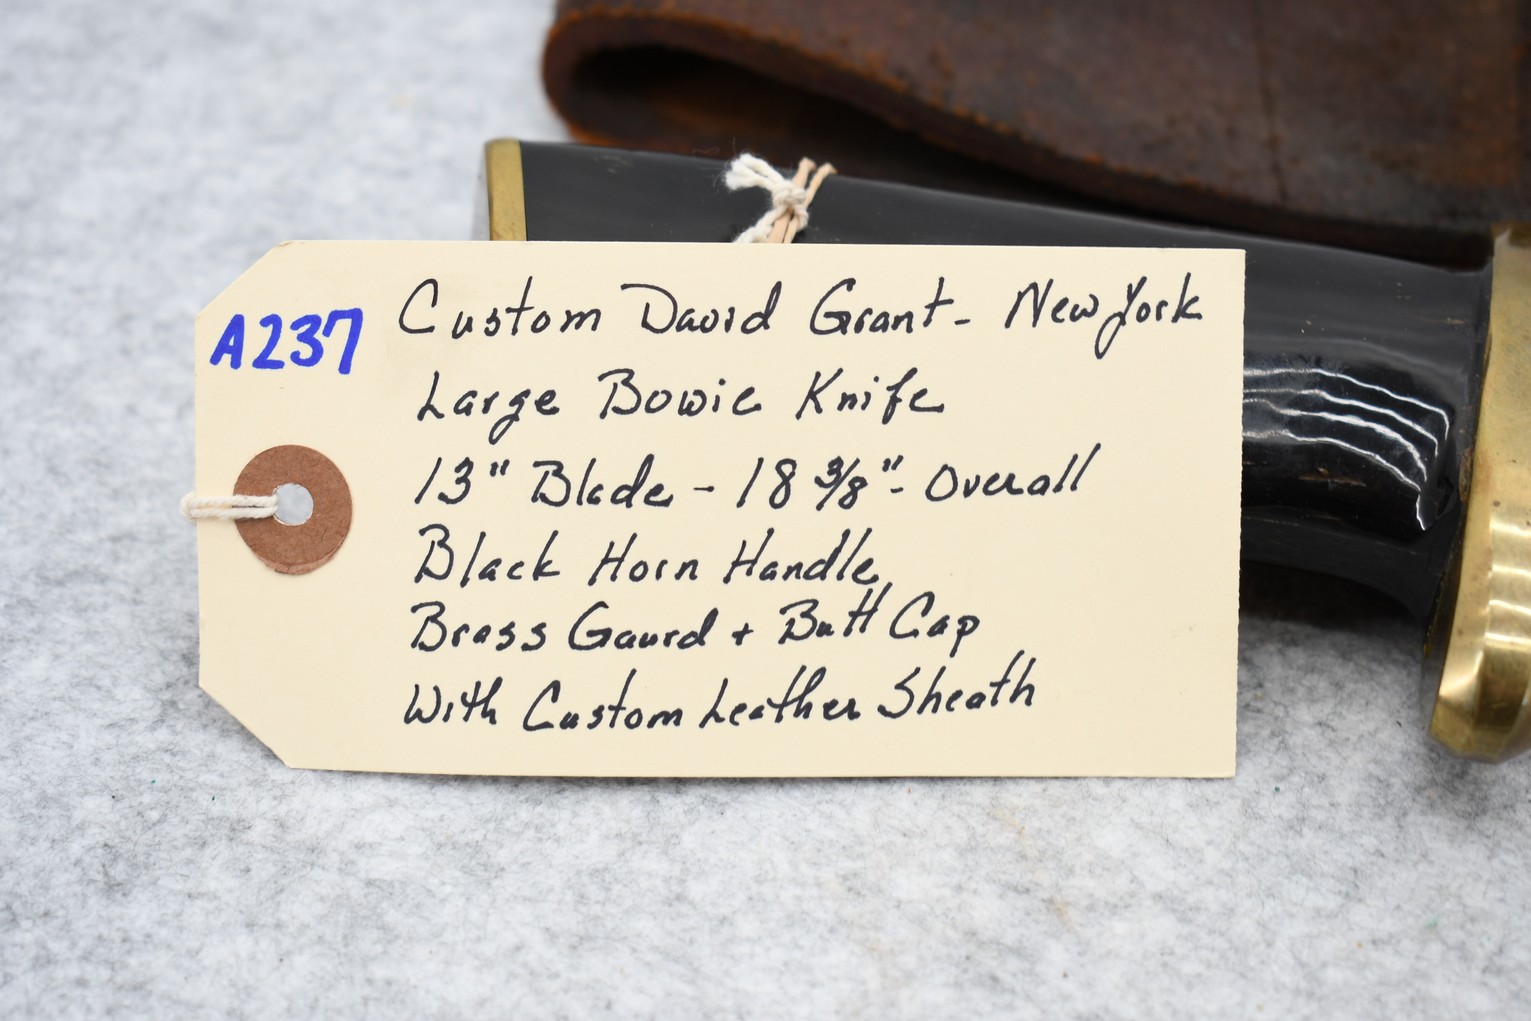 A237
Custom David Grant - New York
Large Bowie Knife
13" Blade - 18 3/8" - Overall
Black Horn Handle
Brass Gaurd + Butt Cap
With Custom Leather Sheath